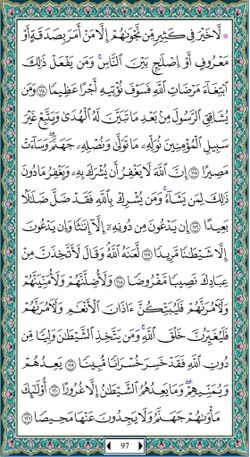 ۞ لَّا خَيْرَ فِي كَثِيرٍ مِّن نَّجْوَىٰهُمْ إِلَّا مَنْ أَمَرَ بِصَدَقَةٍ أَوْ
مَعْرُوفٍ أَوْ إِصْلَٰحٍۭ بَيْنَ ٱلنَّاسِۚ وَمَن يَفْعَلْ ذَٰلِكَ
ٱبْتِغَآءَ مَرْضَاتِ ٱللَّهِ فَسَوْفَ نُؤْتِيهِ أَجْرًا عَظِيمًا ١١٤ وَمَن
يُشَاقِقِ ٱلرَّسُولَ مِنۢ بَعْدِ مَا تَبَيَّنَ لَهُ ٱلْهُدَىٰ وَيَتَّبِعْ غَيْرَ
سَبِيلِ ٱلْمُؤْمِنِينَ نُوَلِّهِۦ مَا تَوَلَّىٰ وَنُصْلِهِۦ جَهَنَّمَۖ وَسَآءَتْ
مَصِيرًا ١١٥ إِنَّ ٱللَّهَ لَا يَغْفِرُ أَن يُشْرَكَ بِهِۦ وَيَغْفِرُ مَا دُونَ
ذَٰلِكَ لِمَن يَشَآءُۚ وَمَن يُشْرِكْ بِٱللَّهِ فَقَدْ ضَلَّ ضَلَٰلًۢا
بَعِيدًا ١١٦ إِن يَدْعُونَ مِن دُونِهِۦٓ إِلَّآ إِنَٰثًا وَإِن يَدْعُونَ
إِلَّا شَيْطَٰنًا مَّرِيدًا ١١٧ لَّعَنَهُ ٱللَّهُۘ وَقَالَ لَأَتَّخِذَنَّ مِنْ
عِبَادِكَ نَصِيبًا مَّفْرُوضًا ١١٨ وَلَأُضِلَّنَّهُمْ وَلَأُمَنِّيَنَّهُمْ
وَلَءَامُرَنَّهُمْ فَلَيُبَتِّكُنَّ ءَاذَانَ ٱلْأَنْعَٰمِ وَلَءَامُرَنَّهُمْ
فَلَيُغَيِّرُنَّ خَلْقَ ٱللَّهِۚ وَمَن يَتَّخِذِ ٱلشَّيْطَٰنَ وَلِيًّا مِّن
دُونِ ٱللَّهِ فَقَدْ خَسِرَ خُسْرَانًا مُّبِينًا ١١٩ يَعِدُهُمْ
وَيُمَنِّيهِمْۖ وَمَا يَعِدُهُمُ ٱلشَّيْطَٰنُ إِلَّا غُرُورًا ١٢٠ أُو۟لَٰٓئِكَ
مَأْوَىٰهُمْ جَهَنَّمُ وَلَا يَجِدُونَ عَنْهَا مَحِيصًا ١٢١
97